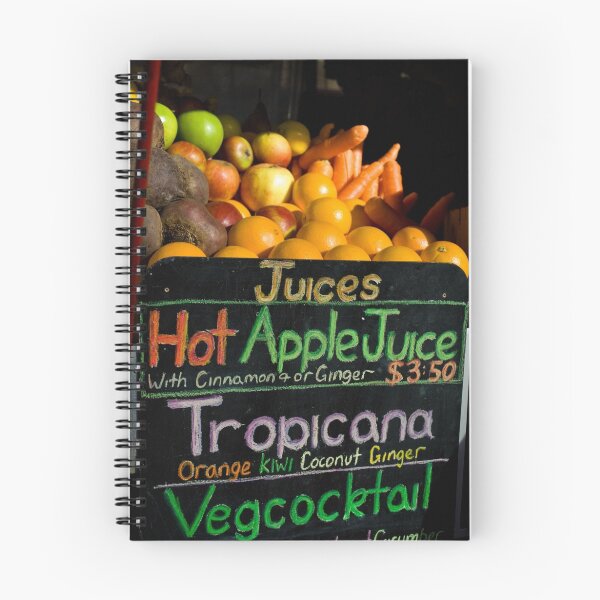 Juices
Hot Apple Juice
With Cinnamon & or Ginger $3.50
Tropicana
Orange Kiwi Coconut Ginger
Vegcocktail